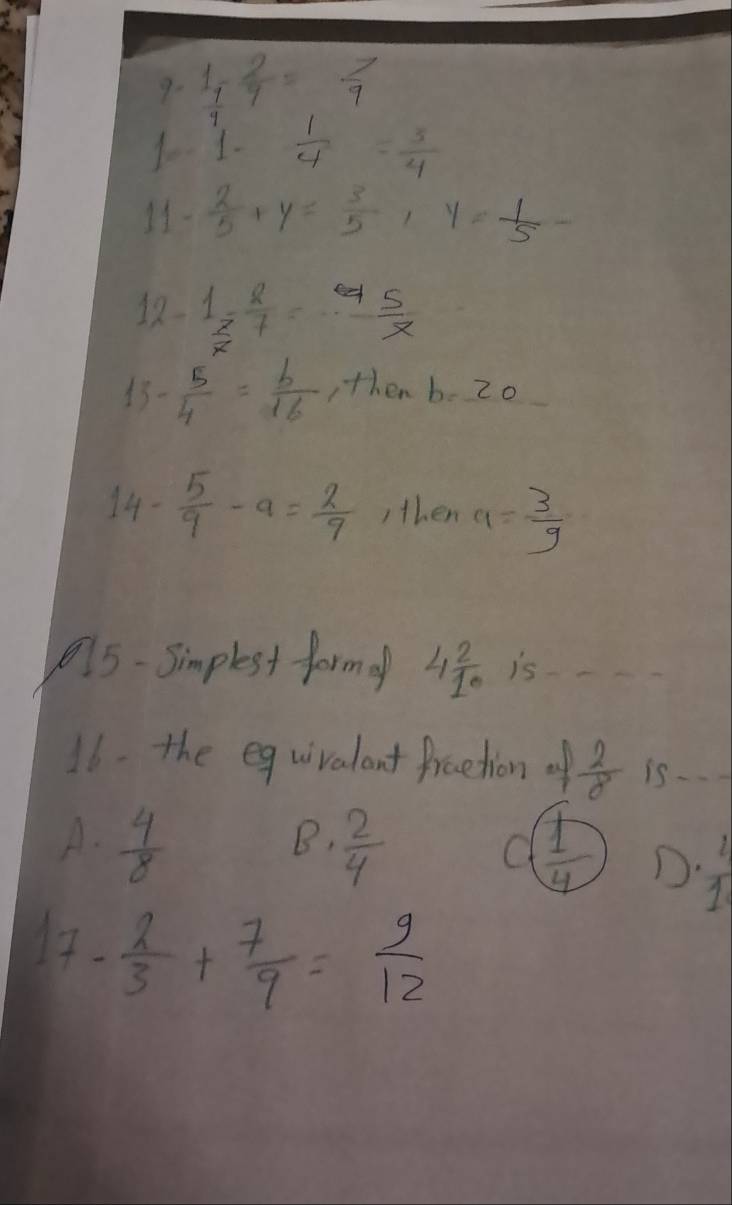 9- 1 - 2/9 = 7/9
9/9
10- 1 - 1/4 = 3/4
11- 2/5 + y = 3/5 , y = 1/5
12- 1 - 2/7 = 5/7
7/7
13- 5/4 = b/16 , then b = 20
14- 5/9 - a = 2/9 , then a = 3/9
15- Simplest form of 4 2/10 is ----
16- the equivalant fraction of 2/8 is ---
A. 4/8 B. 2/4 C. 1/4 D.
17- 2/3 + 7/9 = 9/12